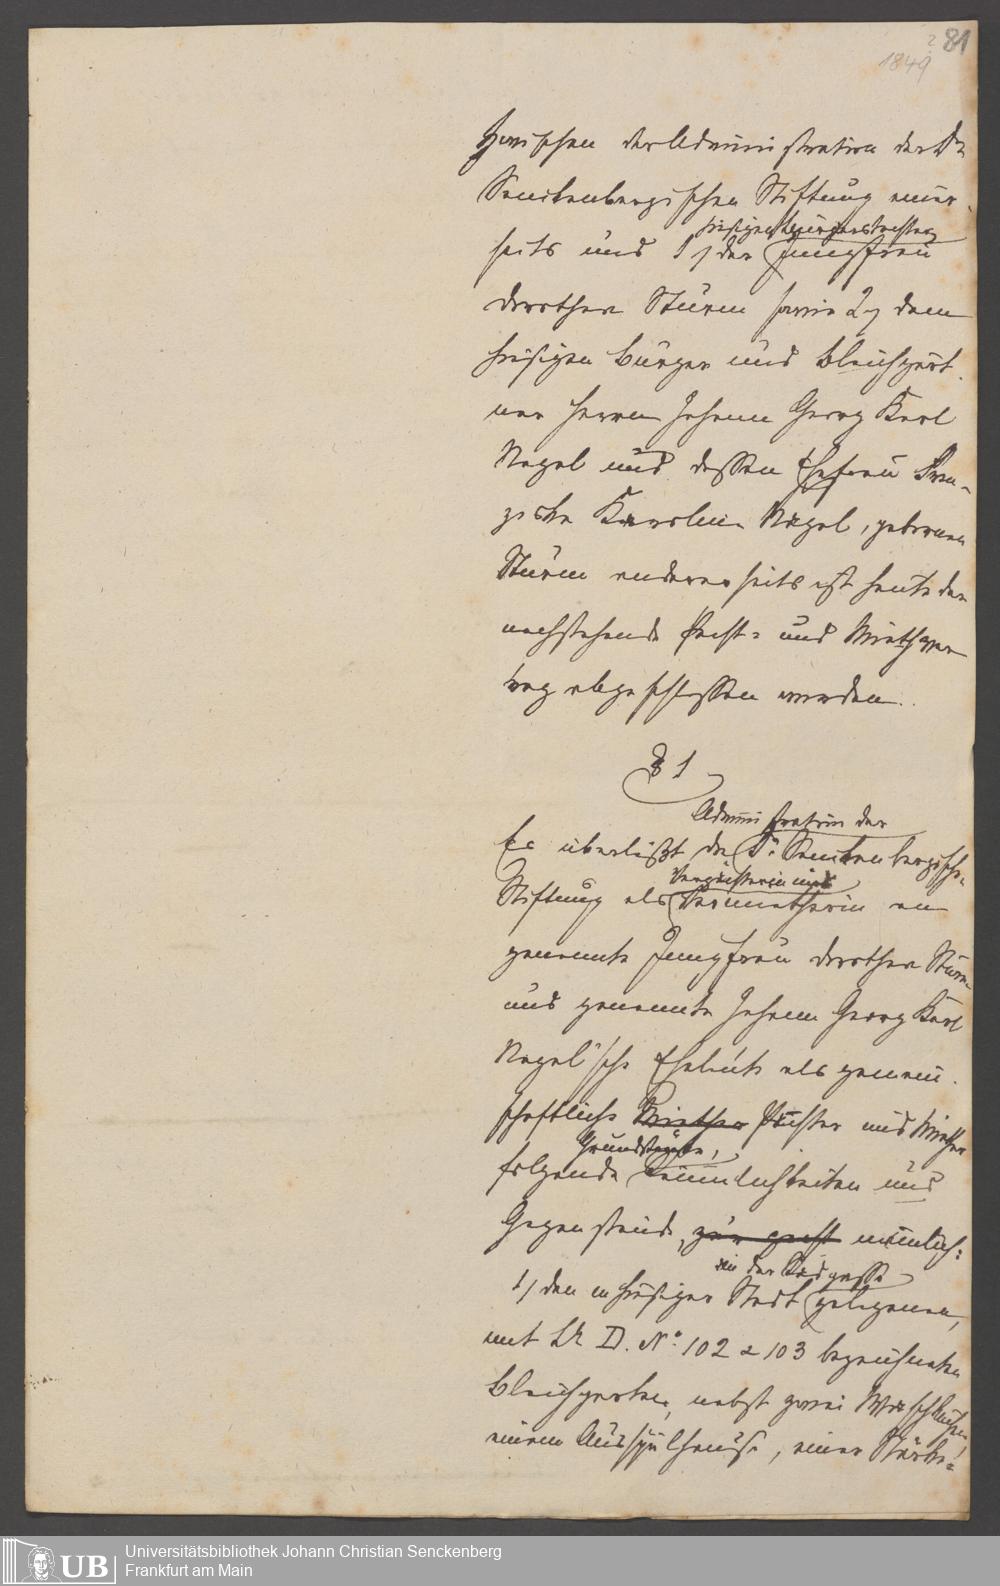 81
1849
Zwischen der Administration der Dr.
Senckenbergischen Stiftung einer-
seits und 1) der hiesigen Bürgerstochter Jungfrau
Dorothea Sturm sowie 2) dem
hiesigen Bürger und Bleichgärt-
ner Herrn Johann Georg Karl
Nagel und dessen Ehefrau Fran-
ziska Karoline Nagel, gebornen
Sturm andererseits ist heute der
nachstehende Pacht- und Miethver-
trag abgeschlossen worden.
§ 1
Es überläßt die Administration der Dr. Senckenbergische
Stiftung als Verpächterin und Vermietherin an
genannte Jungfrau Dorothea Sturm
und genannte Johann Georg Karl
Nagel'sche Eheleute als gemein-
schaftliche Miether Pächter und Miether
folgende Grundstücke, Räumlichkeiten und
Gegenstände, nämlich:
1) den in hiesiger Stadt in der gelegenen,
mit Lit. D. No. 102 & 103 bezeichneten
Bleichgarten, nebst zwei Waschhäusern,
einem Ausspülhause, einer Stärke-
UB
Universitätsbibliothek Johann Christian Senckenberg
Frankfurt am Main